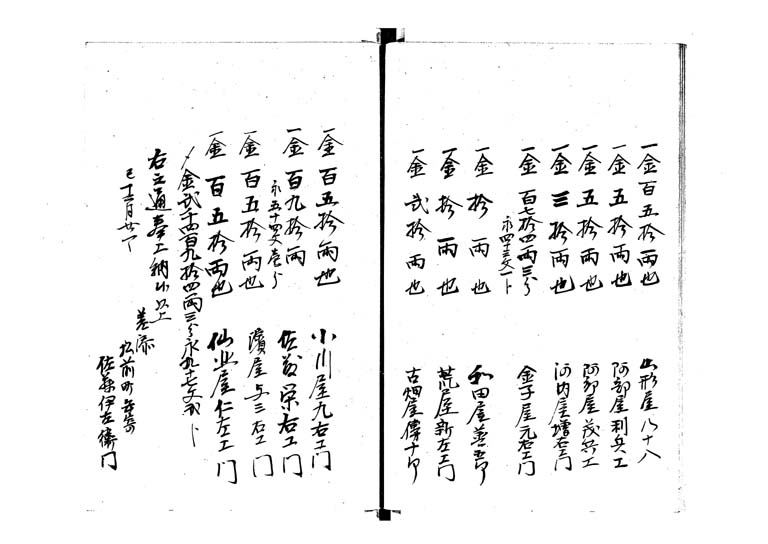 一金百五拾両也 山形屋八十八
一金五拾両也 阿部屋利兵エ
一金五拾両也 阿部屋茂兵エ
一金三拾両也 河内屋増右エ門
一金百七拾四両三分 金子屋元右エ門
永四十三文一ト
一金拾両也 和田屋
一金拾両也 荒屋新左エ門
一金弐拾両也 古畑屋傳十郎
一金百五拾両也 小川屋九右エ門
一金百九拾両 佐藤栄右エ門
永五十四文壱分
一金百五拾両也 濱屋与三右エ門
一金百五拾両也 仙北屋仁左エ門
〆金弐千四百九拾四両三分永九十七文弐ト
右之通奉上納候以上
巳十二月廿
差添
松前町年寄
佐藤伊左衛門